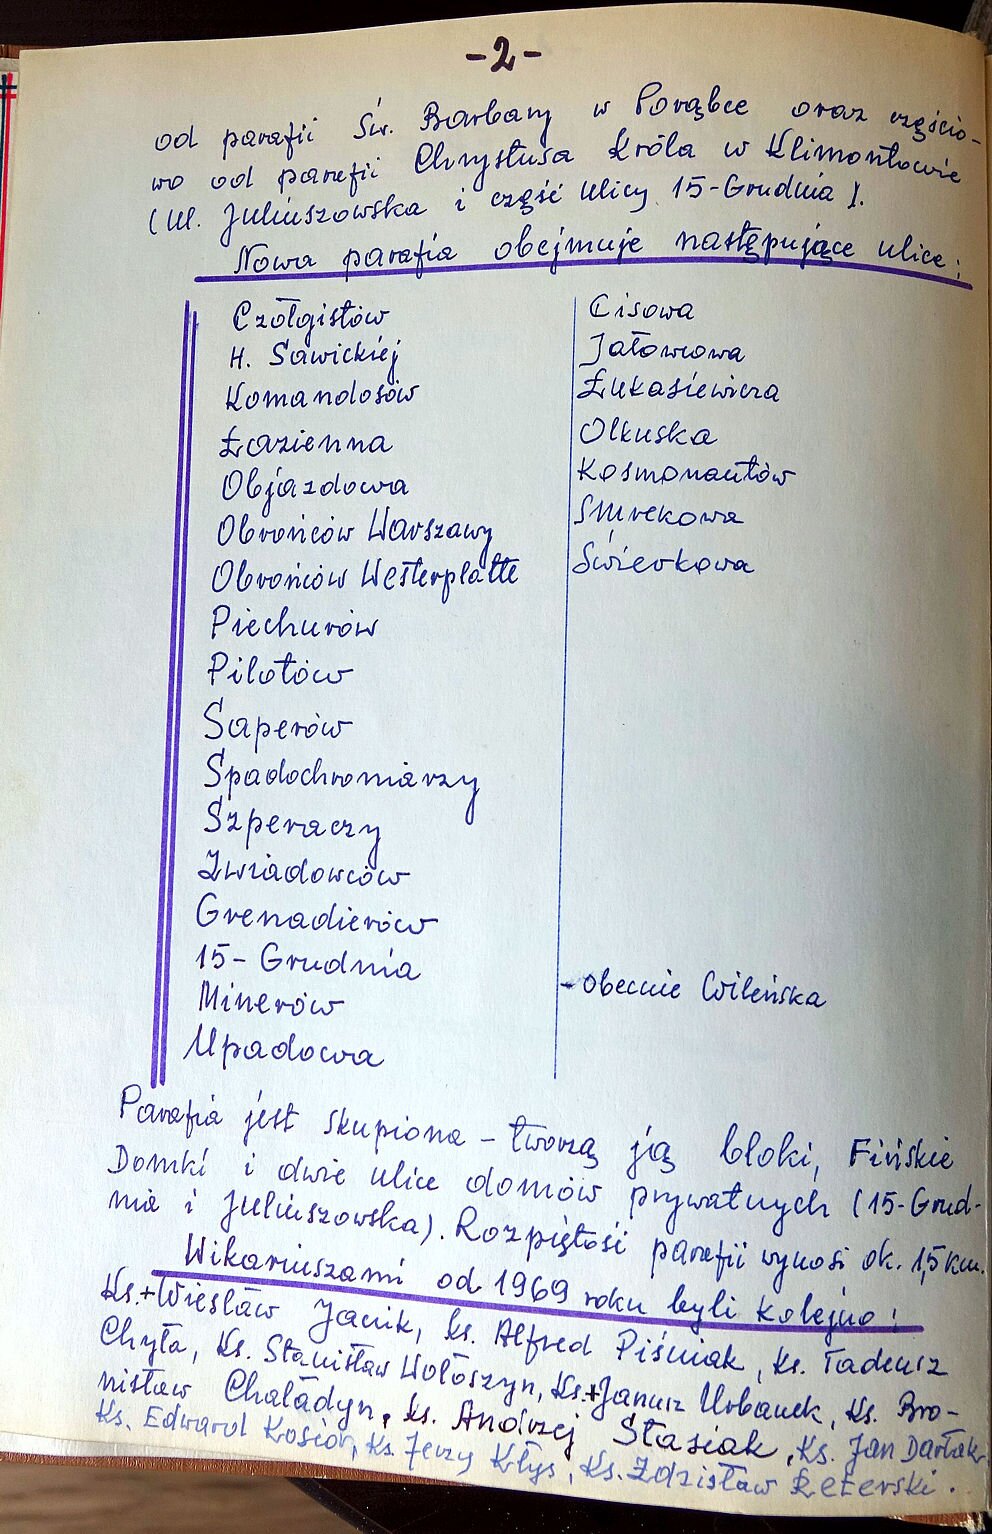 -2-
od parafii Św. Barbary w Porąbce oraz częścio-
wo od parafii Chrystusa Króla w Klimontowie
(ul. Juliuszowska i część ulicy 15-Grudnia).
Nowa parafia obejmuje następujące ulice:
Czołgistów
H. Sawickiej
Komandosów
Łazienna
Objazdowa
Obrońców Warszawy
Obrońców Westerplatte
Piechurów
Pilotów
Saperów
Spadochroniarzy
Szperaczy
Zwiadowców
Grenadierów
15-Grudnia
Minerów
Upadowa
Cisowa
Jałowcowa
Łukasiewicza
Olkuska
Kosmonautów
Smrekowa
Świerkowa
- obecnie Wileńska
Parafia jest skupiona - tworzą ją bloki, Fińskie
Domki i dwie ulice domów prywatnych (15-Grud-
nia i Juliuszowska). Rozpiętość parafii wynosi ok. 1,5 km.
Wikariuszami od 1969 roku byli kolejno:
Ks.+Wiesław Jacik, ks. Alfred Piśniak, ks. Tadeusz
Chyła, Ks. Stanisław Wołoszyn, Ks.+Janusz Urbanek, Ks. Bro-
nisław Chaładyn, ks. Andrzej Stasiak, Ks. Jan Darłak
Ks. Edward Kosior, Ks. Jerzy Kłys, Ks. Zdzisław Reterski.